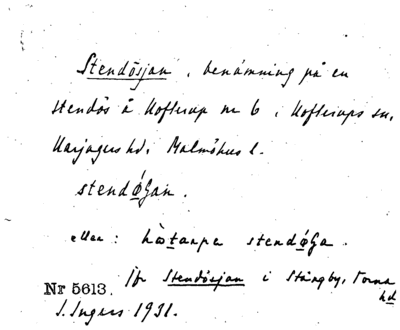 Stendösjan, benämning på en
stendös å Hofterup nr 6 i Hofterups sn,
Harjagers hd, Malmöhus l.
stendǿʃan.
eller: hǫstarpa stendǿʃa.
Jfr Stendösjan i Stångby, Torna
hd
Nr 5613.
S. Ingers 1931.